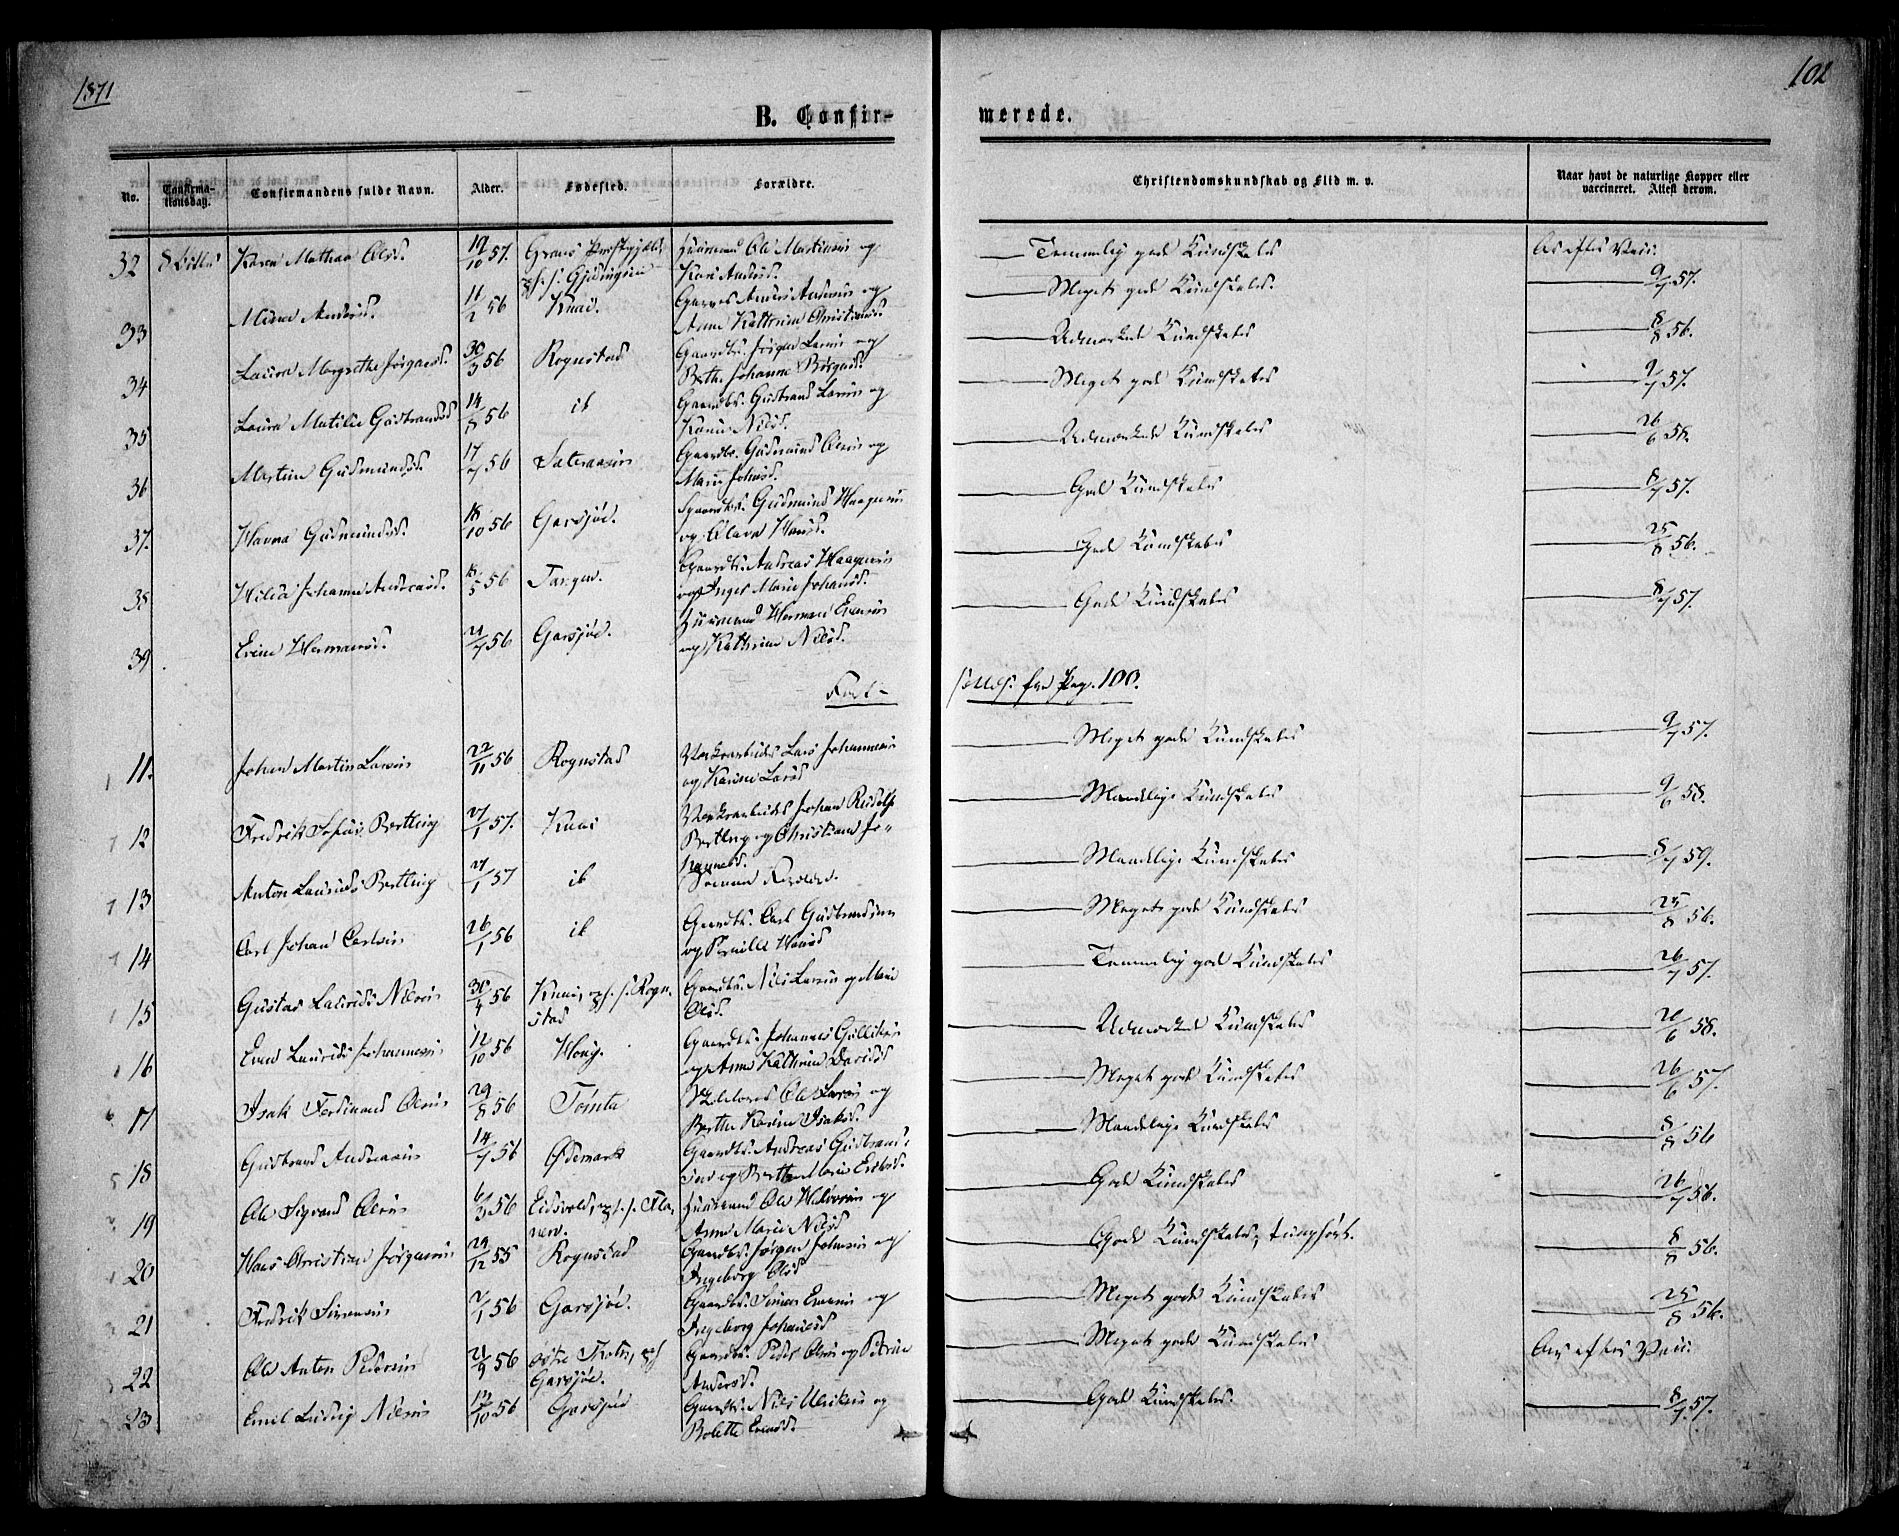 1871
102
B. Confir-
merede.
No.
Confirma-
tionsdag.
Confirmandens fulde Navn.
Alder.
Fødested.
Forældre.
Christendomskundskab og Flid m. v.
Naar havt de naturlige Kopper eller
vaccineret. Attest derom.
32 Karen Mathea Olsd. 19/10 57. Grans Præstegjæld, Huusmand Ole Martinsen og
Kari Andersd.
Temmelig gode Kundskaber
9/7 57.
33 Andersd. 11/2 56 Knai. Anders Andersen og
Anne Kathrine Christiansd.
Meget gode Kundskaber.
8/8 56.
34 Laura Margrethe Jørgensd. 30/3 56 Rognstad Gaardbr. Jørgen Larsen og
Berthe Johanne
Udmærkede Kundskaber
9/7 57.
35 Laura Matilde Gudbrandsd. 14/8 56 ib Gaardbr. Gudbrand Larsen og
Karen Nilsd.
Meget gode Kundskaber
26/6 58.
36 Martine Gudmundsd. 17/7 56 Gaardbr. Gudmund Olsen og
Marie Johnsd.
Udmærkede Kundskaber
8/7 57.
37. Hanna Gudmundsd. 18/10 56 Garsjøe. Gaardbr. Gudmund Haagensen
og Olava Hansd.
Gode Kundskaber
25/8 56.
38 Johanne Andreasd. 5 56 Tangen. Gaardbr. Andreas Haagensen
og Inger Marie Johansd.
Gode Kundskaber
8/7 57.
39 Hermansd. 21/7 56 Garsjøe. Huusmand Herman Evensen
og Kathrine Nilsd.
Gode Kundskaber
fra Pag. 100.
11. Johan Martin Larsen 22/11 56 Rognstad Værksarbeider Lars Johannesen
og Karine Larsd.
Meget gode Kundskaber
9/7 57.
12 Fredrik Bertling 27/1 57. Knai Værksarbeider Johan Rudolf
Bertling og Christiane Jo-
hannesd.
Maadelige Kundskaber
9/6 58.
13 Anton Laurids Bertling 27/1 57 ib Samme Forældre.
Maadelige Kundskaber
8/7 59.
14 Carl Johan Carlsen 26/1 56 ib Gaardbr. Carl Gudbrandsen
og Pernille Hansd.
Meget gode Kundskaber
25/8 56.
15 Gustav Laurids Nilsen 30/4 56 Knai, Rogn-
stad Gaardbr. Nils Larsen og Marie
Olsd.
Temmelig gode Kundskaber
26/7 57.
16 Even Laurids Johannesen 12/10 56 Gaardbr. Johannes Gulliksen
og Anne Kathrine Davidsd.
Udmærkede Kundskaber
58.
17 Isak Ferdinand Olsen 29/8 56 Tømte Ole Larsen og
Berthe Karine Isaksd.
Meget gode Kundskaber
26/6 57.
18 Gudbrand Andreassen 14/7 56 Ødemark Gaardbr. Andreas Gudbrand-
sen og Berthe Marie Eriksd.
Maadelige Kundskaber
8/8 56
19 Ole Sigvard Olsen 6/3 56 Eidsvold, Huusmand Ole Halvorsen og
Anne Marie Nilsd
Gode Kundskaber
26/7 56.
20 Hans Christian Jørgensen 29/12 55 Rognstad Gaardbr. Jørgen Johnsen og
Ingeborg Olsd
Gode Kundskaber, tunghørt.
8/8 56.
21 Fredrik Simensen 7/1 56 Garsjøe. Gaardbr. Simen Evensen og
Ingeborg Johannesd
Meget gode Kundskaber
25/8 56.
22 Ole Anton Pedersen 21/9 56
Garsjøe. Gaardbr. Peder Olsen og Petrine
Andersd.
Meget gode Kundskaber
23. Emil Ludvig Nilsen 13/10 56 Garsjøe Gaardbr. Nils Ulriksen og
Bolette Evensd.
Gode Kundskaber.
8/7 57.